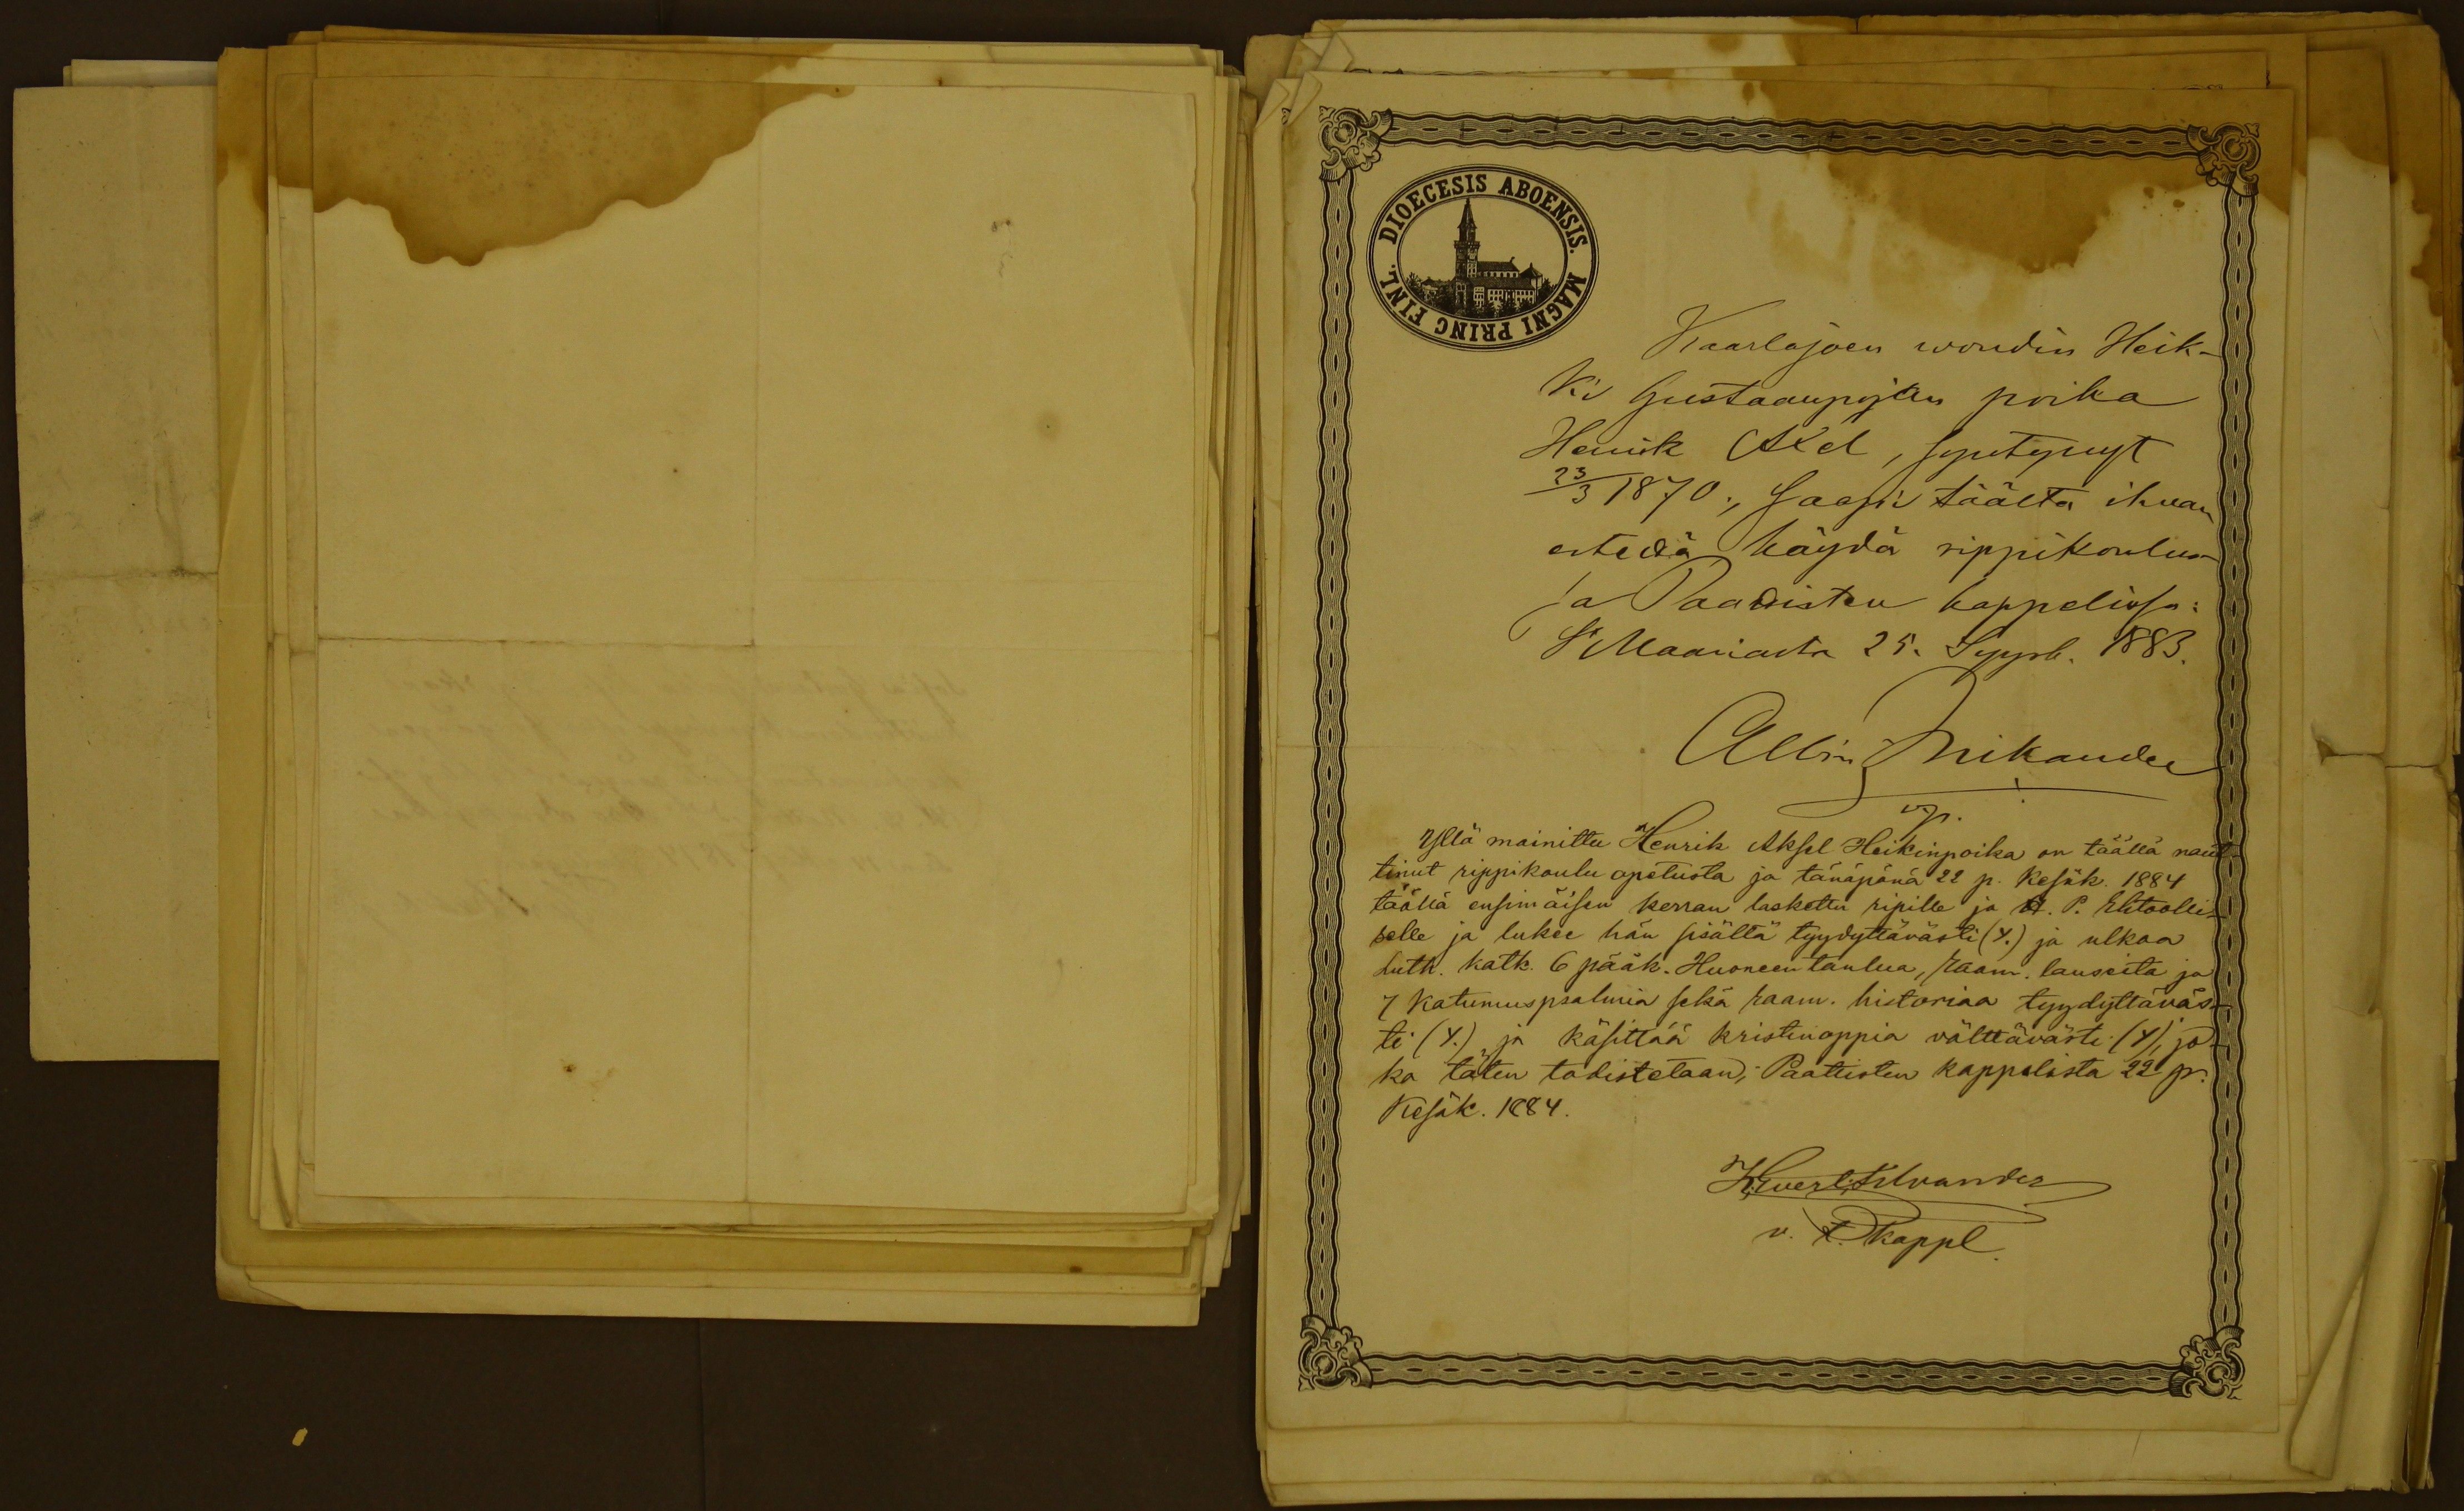 DIOECESIS ABOENSIS. MAGNI PRINC FINL.
Kaarlajoen woudin Heik-
ki Gustaanpojan poika
Henrik Axel, syntynyt
23/3 1870., saapi täältä ilman
estettä käydä rippikoulus-
sa Paatisten kappelissa:
St Maariasta 25. Syysk. 1883.
Albin Nikander
vp.
Yllä mainittu Henrik Aksel Heikinpoika on täällä naut-
tinut rippikoulu opetusta ja tänäpänä 22 p. Kesäk. 1884
täällä ensimäisen kerran laskettu ripille ja H. P. Ehtoolli-
selle ja lukee hän sisältä tyydyttävästi (Y.) ja ulkoa
Luth. katk. 6 pääk. Huoneen taulua, raam. lauseita ja
7 katumuspsalmia sekä raam. historiaa tyydyttäväs-
ti (Y.) ja käsittää kristinoppia välttävästi (Y), jo-
ka täten todistetaan; Paattisten kappelista 22 p.
Kesäk. 1884.
K. Evert Silvander
v. t. kappl.